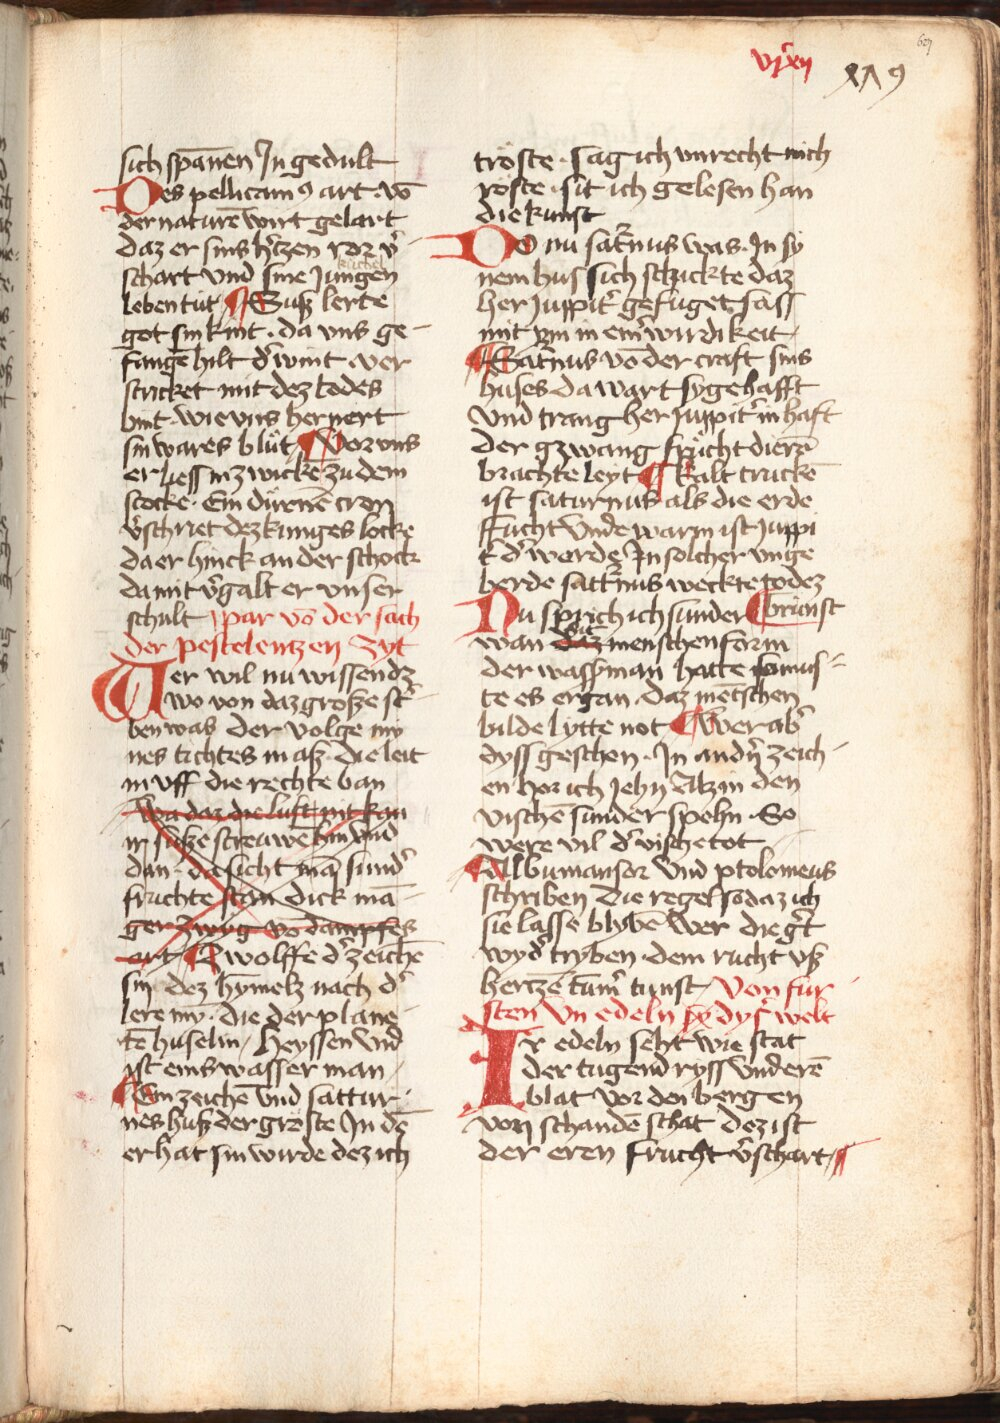 sich spānen In gedult
Des pellicanꝰ art · vō
der naturē wirt gelart
daz er sins h̓tzen ror v̓
schart vnd sine Jungen
kuchel
leben tůt ¶ Suß lerte
got sin kint · da vns ge-
fangē hilt d̓ wint · ver
stricket mit dez todes
bint · wie vns hernert
sin wares blůt ¶ vor vns
er liess in zwickē zu dem
stocke · Ein dürnēn cron
v̓schriet dez kunges locke
da er hinck an der schock
da mit v̓galt er vnser
schult par vō der sach
der pestelentzen Zyt
Wer wil nu wissen dz
wo von daz große st̓-
ben was der volge my
nes tichtes maß · die leit
in vff die rechte ban
wa daz die luft nit kan
ir süße streuwē hin vnd
dan · da sicht mā sund̓
fruchte stan dick mā-
ger zwyg vō dampfes
art ¶ Zwolffe d̓ zeichē
sin dez hymelz nach d̓
lere my · die der plane-
tē huselin / heyssen vnd
ist eins wasser man
¶ Ein zeichē vnd sattur-
nes huß der gröste In dē
er hat sin wirde dez ich
vjͬxij
629
tröste · sag ich vnrecht mich
röste · sit ich gelesen han
die kunst
Do nu sat̓nus was · In sy
nem hus sich schickte daz
her Juppit̓ gefuget sass
mit ym in ein̓ wirdikeit
¶ Sat̓nus vō der craft sins
huses da wart sygehafft
vnd trang her Juppit̓ in haft
der gzwang frücht dierē
brachte leyt ¶ kalt truckē
ist saturnus als die erde
Fücht vnde warm ist Juppi
t̓ d̓ werde In solcher vnge
berde satt̓nus weckte todez
Nu sprich ich sunder ¶ brünst
wan daz menschen form
der wassyman hatte sunus-
te es ergan · daz mētschen
bilde lytte not ¶ wer ab̓
dyss geschen · In and̓n zeich-
en hor ich Jehn Alz in den
vischē sunder spehn · So
were vil d̓ vische tot
¶ Albumansor vnd ptolomeus
schriben die regel so daz ich
sie lasse blybē wer die g̓t
wyd̓ tryben · dem rucht vß
hertzē tūm̓ tunst / Von fur-
sten vn edeln dyß welt
Ir edeln seht wie stat
der tugend ryss vnderē
blat vor den bergen
von schandē schat dez ist
der eren frucht v̓schart